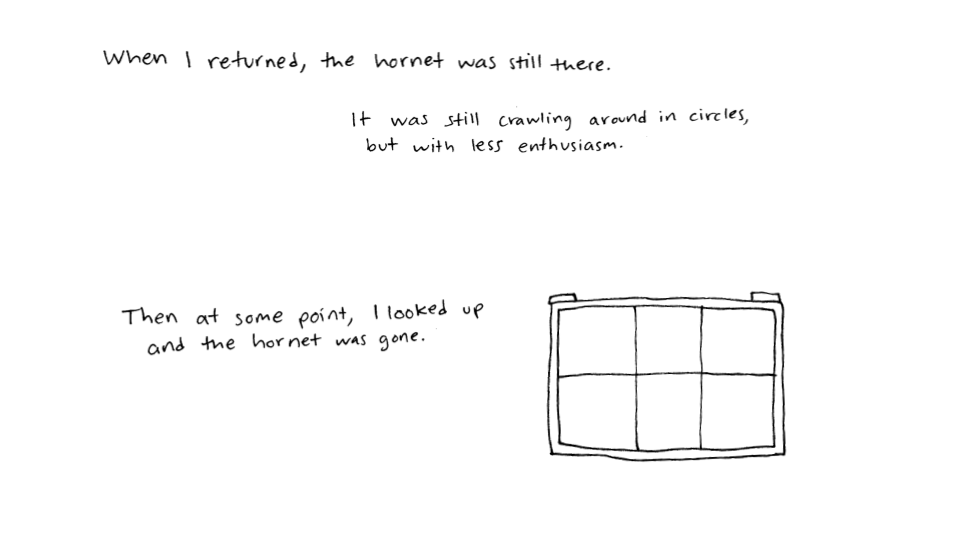 When I returned, the hornet was still there.
It was still crawling around in circles,
but with less enthusiasm.
Then at some point, I looked up
and the hornet was gone.